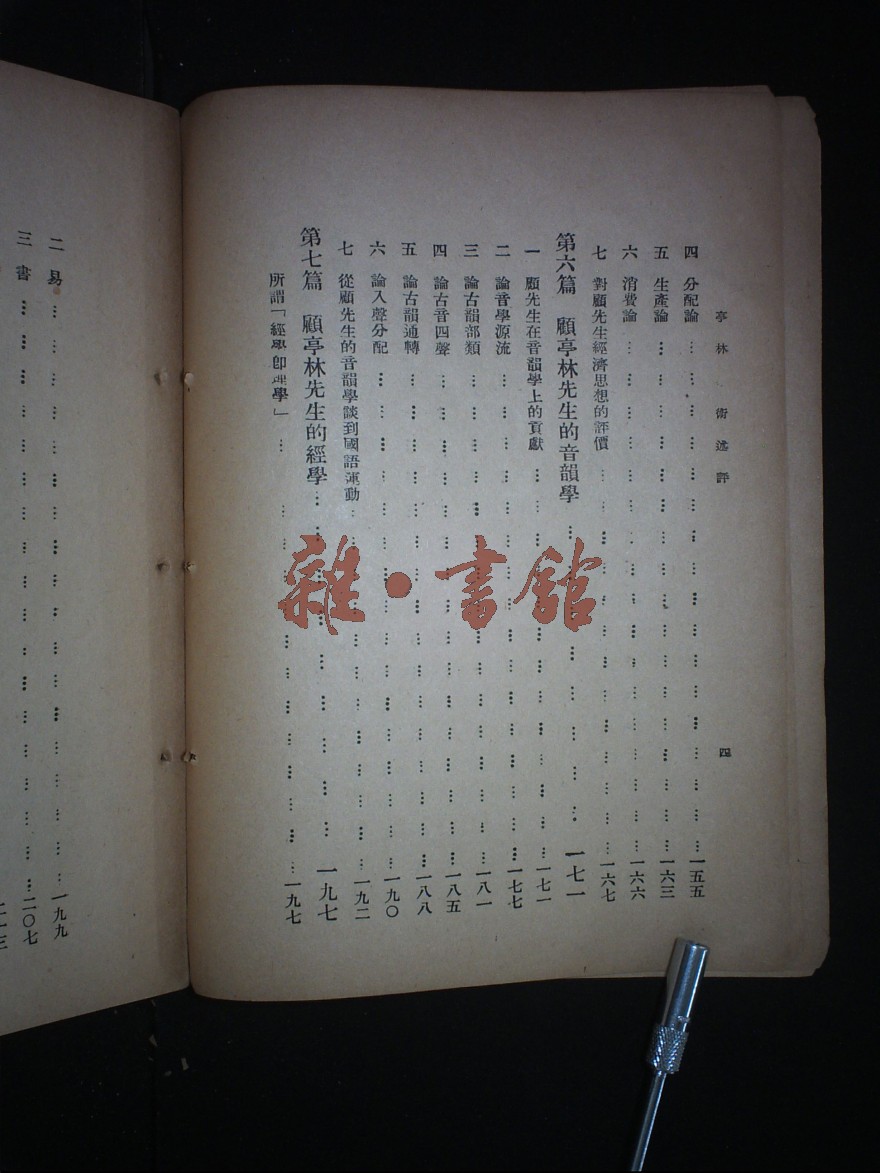 亭林 術述評
四
四 分配論 一五五
五 生產論 一六三
六 消費論 一六六
七 對顧先生經濟思想的評價 一六七
第六篇 顧亭林先生的音韻學 一七一
一 顧先生在音韻學上的貢獻 一七一
二 論音學源流 一七七
三 論古韻部類 一八一
四 論古音四聲 一八五
五 論古韻通轉 一八八
六 論入聲分配 一九〇
七 從顧先生的音韻學談到國語運動 一九二
第七篇 顧亭林先生的經學 一九七
所謂「經學即理學」 一九七
二 易 一九九
三 書 二〇七
雜·書館